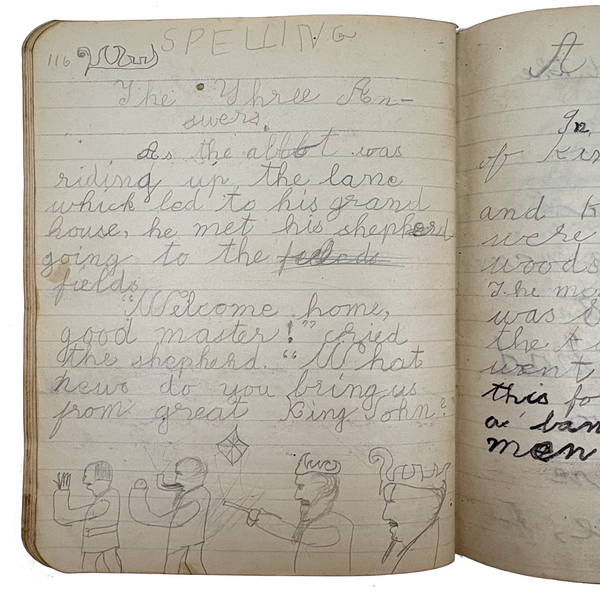 116 SPELLING
The Three An-
swers.
As the abbot was
riding up the lane
which led to his grand
house, he met his shepherd
going to the
fields.
"Welcome home,
good master!" cried
the shepherd. "What
news do you bring us
from great King John?
A
In
of
and K
were
woods
The
was
the
went
this fo
a ban
men